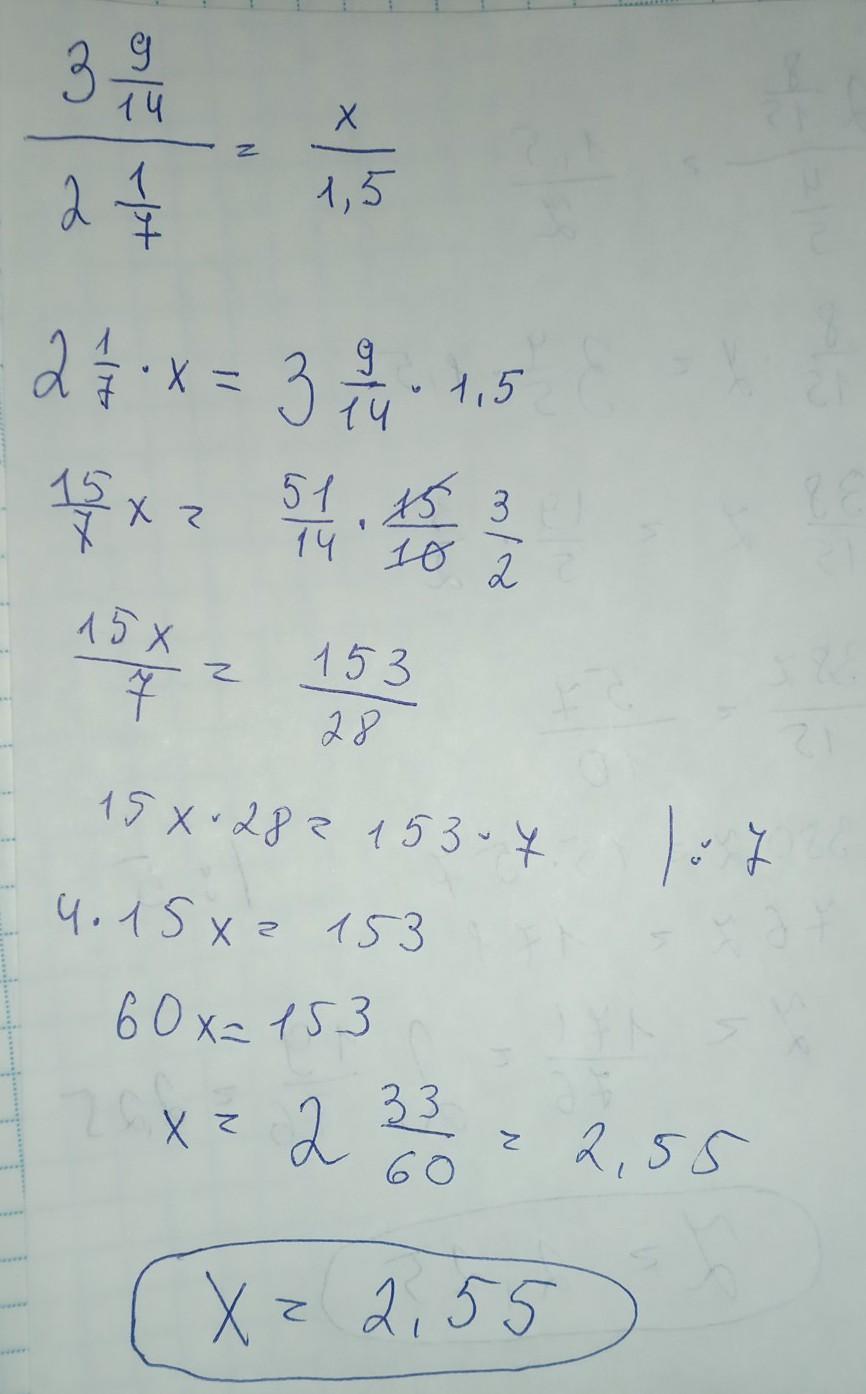 3 9/14 / 2 1/7 = x / 1,5
2 1/7 · x = 3 9/14 · 1,5
15/7 x = 51/14 · 15/10 3/2
15x/7 = 153/28
15x · 28 = 153 · 7 | : 7
4 · 15x = 153
60x = 153
x = 2 33/60 = 2,55
x = 2,55